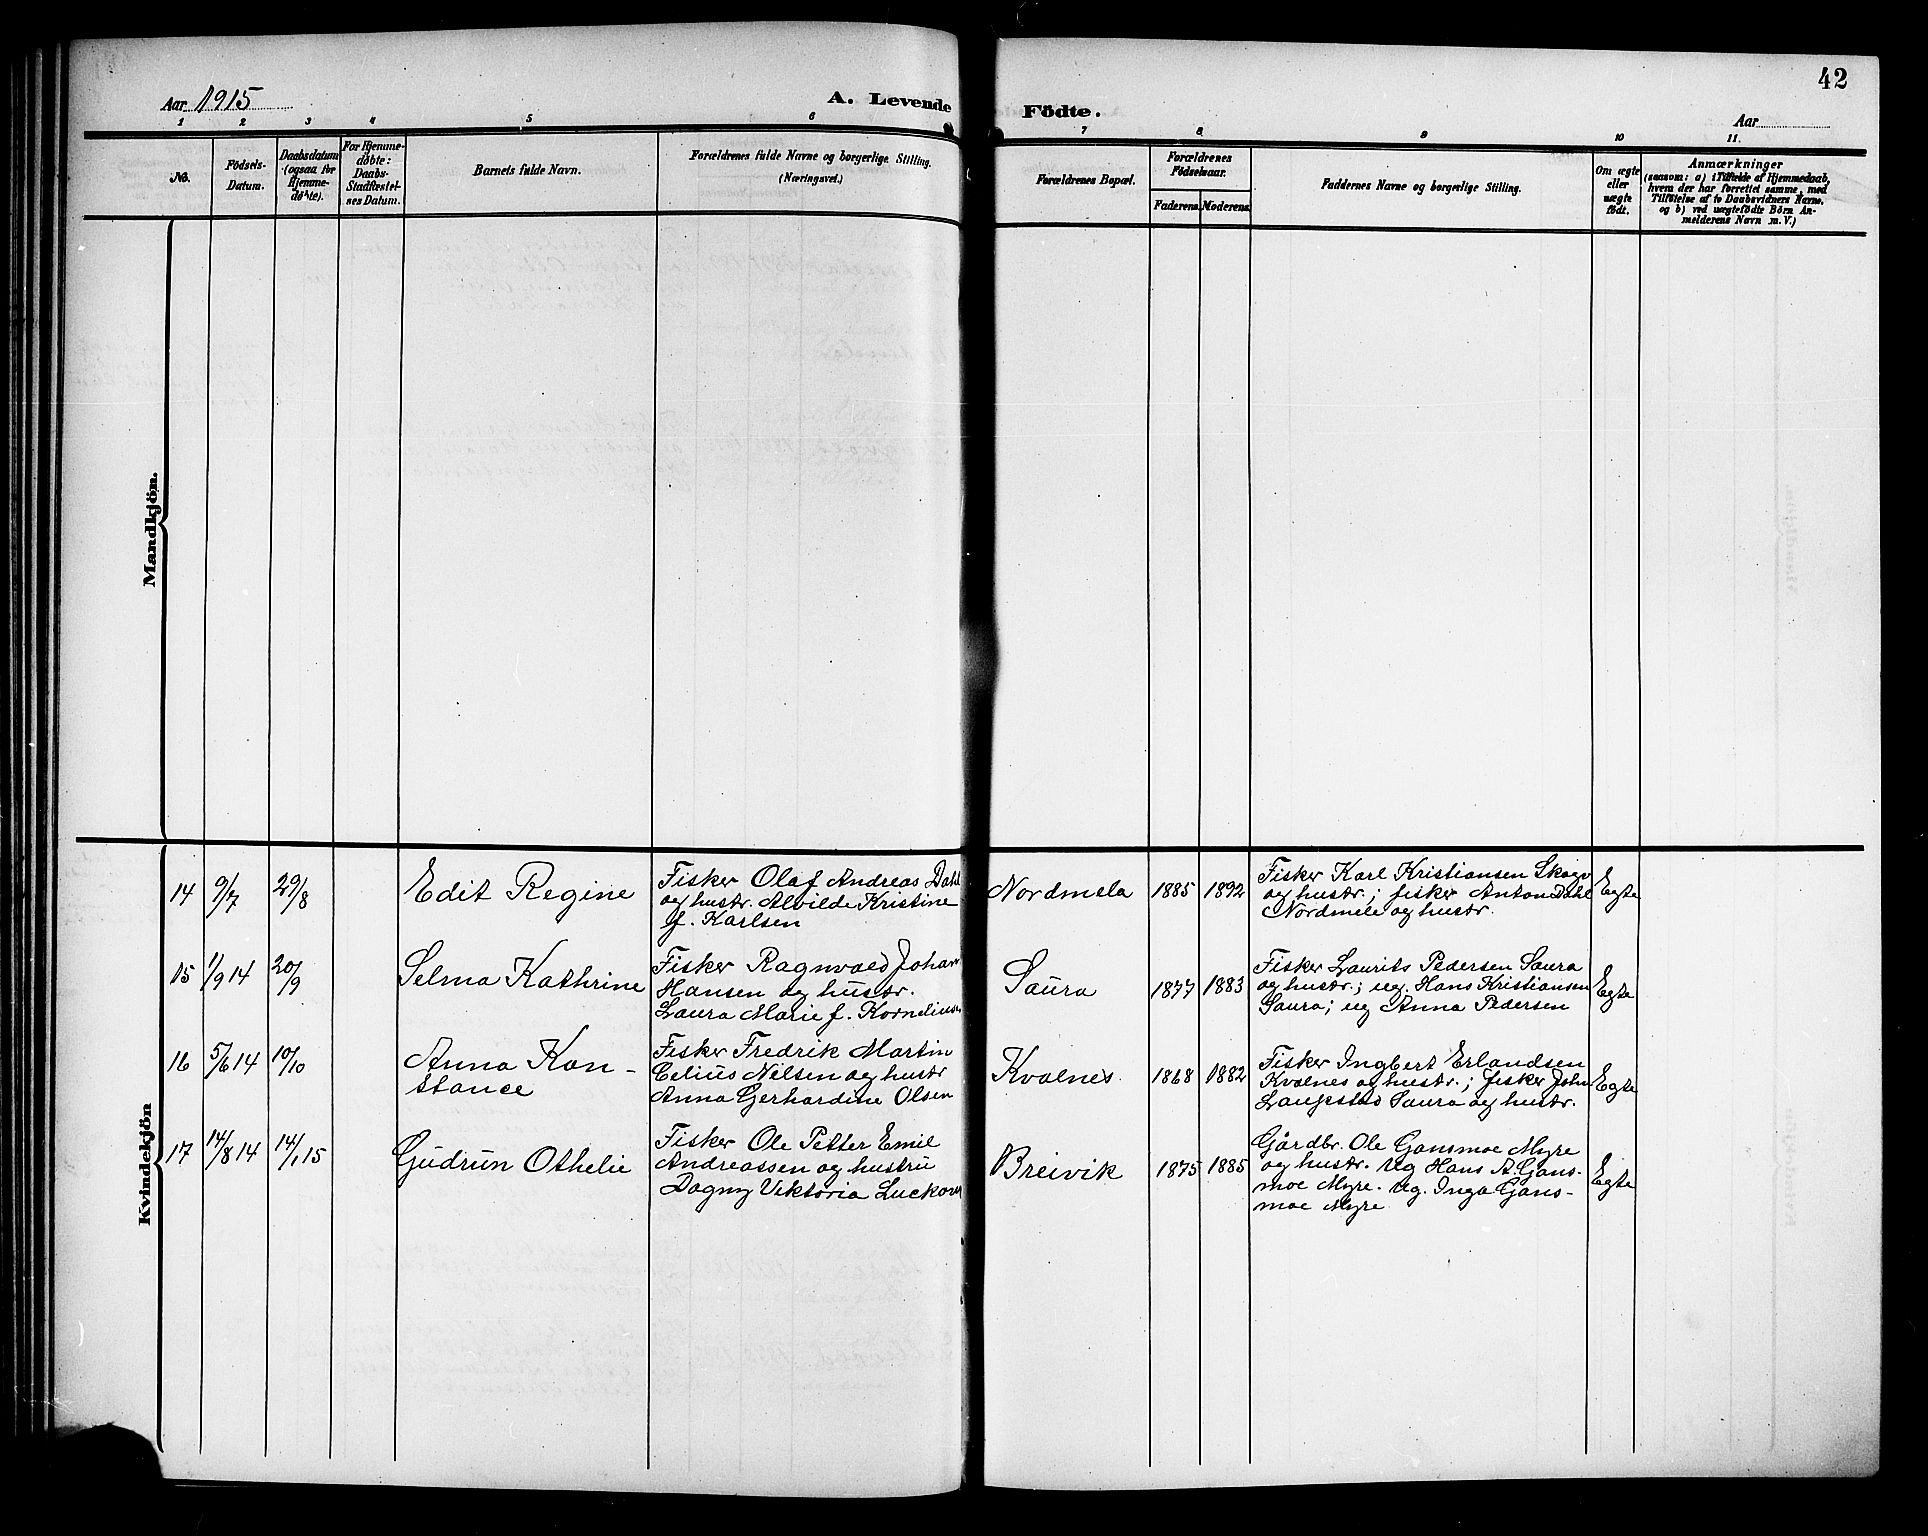 42
Aar 1915
A. Levende Födte.
Aar
1 2 3 4 5 6 7 8 9 10 11.
No.
Födsels-
Datum.
Daabsdatum
(ogsaa for
Hjemme-
døbte).
For Hjemme-
døbte:
Daabs-
Stadfæstel-
ses Datum.
Barnets fulde Navn.
Forældrenes fulde Navne og borgerlige Stilling.
(Næringsvei.)
Forældrenes Bopæl.
Forældrenes
Fødselsaar.
Faderens. Moderens.
Faddernes Navne og borgerlige Stilling.
Om ægte
eller
uægte
født.
Anmærkninger
(saasom: a) i Tilfælde af Hjemmedaab,
hvem der har forrettet samme, med
Tilføielse af to Daabsvidners Navne,
og b) ved uægtefødte Börn An-
melderens Navn m. V.)
Mandkjön.
Kvindekjön
14 9/7 29/8
Edit Regine
Fisker Olaf Andreas Dahl
og hustr. Alvilde Kristine
f. Karlsen
Nordmela 1885 1892
Fisker Karl Kristiansen Skogv
og hustr.; fisker Anton Dahl
Nordmele og hustr.
Egte
15 1/9 14 20/9
Selma Kathrine
Fisker Ragnvald Johan
Hansen og hustr.
Laura Marie f. Kornelius
Saura 1877 1883
Fisker Laurits Pedersen Saura
og hustr.; ug. Hans Kristiansen
Saura; ug Anna Pedersen
Egte
16 5/6 14 10/10
Anna Kon-
stance
Fisker Fredrik Martin
Celius Nilsen og hustr
Anna Gerhardine Olsen
Kvalnes 1868 1882
Fisker Ingbert Erlandsen
Kvalnes og hustr.; fisker John
Laukstad Saura og hustr.
Egte
17 14/8 14 14/1 15
Gudrun Othelie
Fisker Ole Petter Emil
Andreassen og hustru
Dagny Viktoria Luckow
Breivik 1875 1885
Gårdbr. Ole Gansmoe Myre
og hustr. Ug Hans A. Gans-
moe Myre. Ug. Inga Gans-
moe Myre
Egte